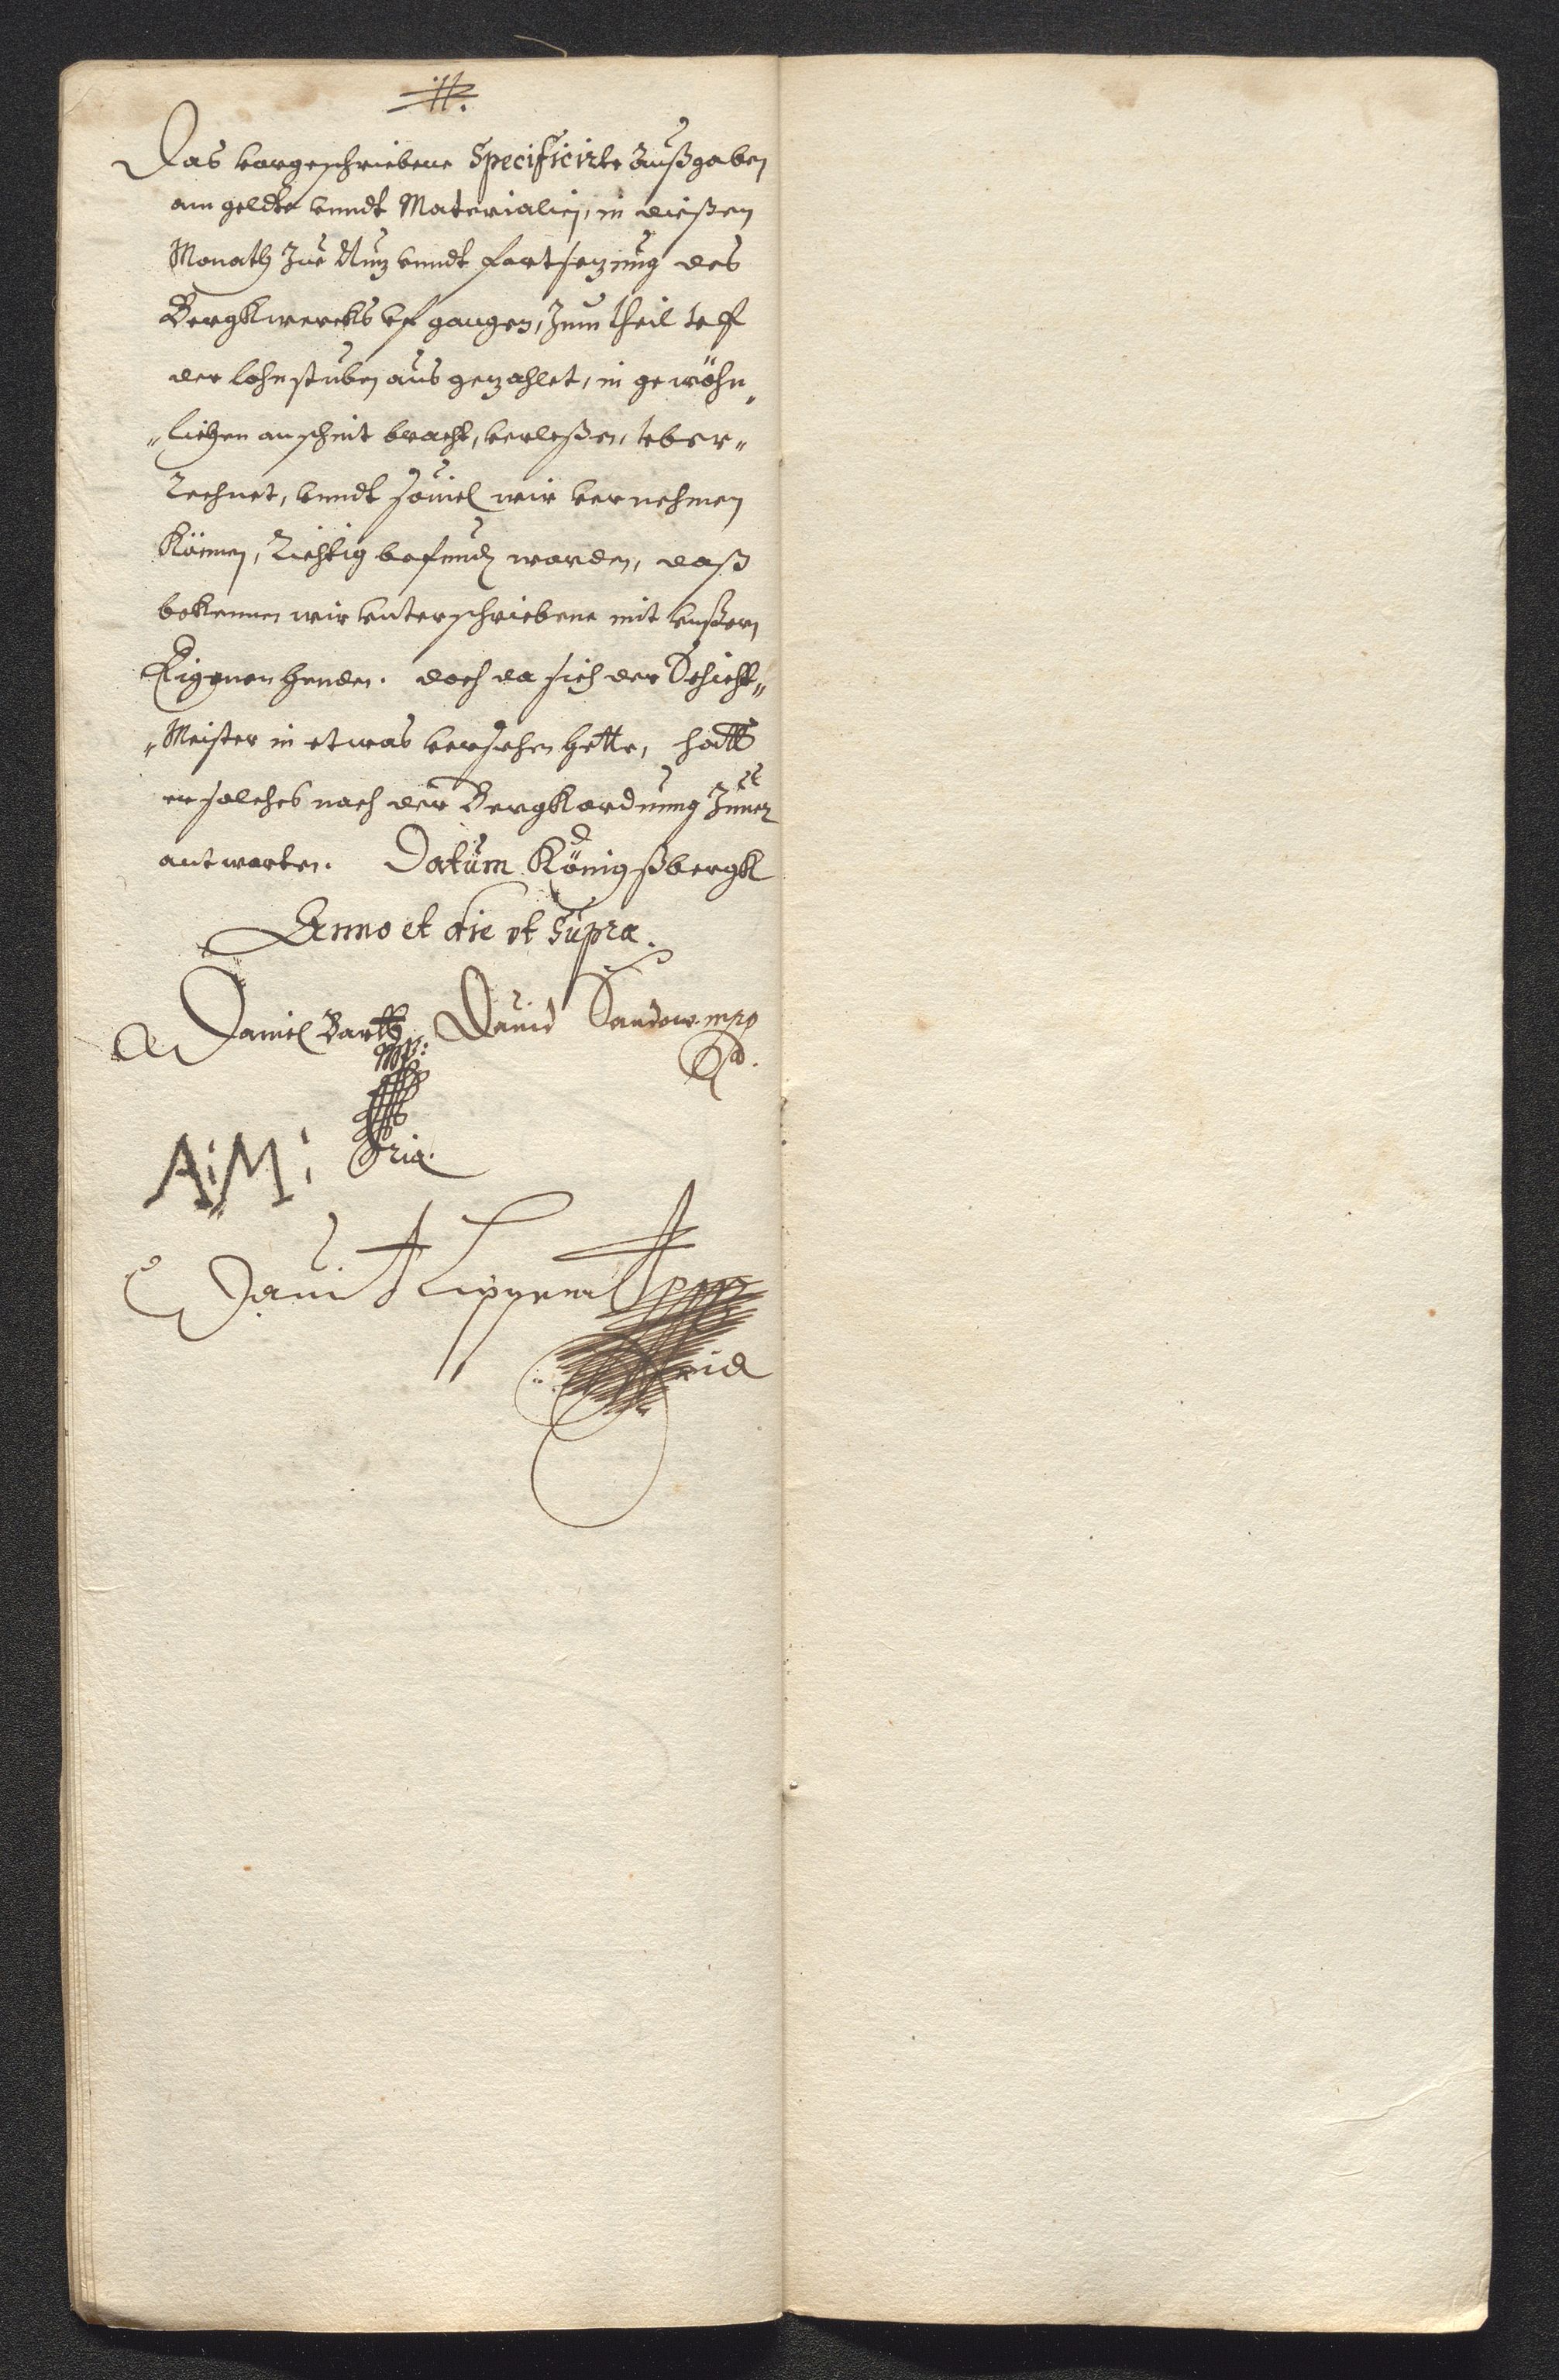 Das vorgeschriebene Specificirte Außgaben
am geldte vnndt Materialien, in dießen
Monath Zue Nuz vnndt fortsezung des
Bergkwercks vf gangen, Zum theil vf
der lohnstuben aus gezahlet, in gewöhn„
„lichen anschnit bracht, verleßen, vber„
Rechnet, vnndt souiel wir vernehmen
Können, Richtig befunden worden, daß
bekennen wir vnterschriebene mit vnßern
Eigenen henden. doch da sich der Schicht„
„Meister in etwas versehen hette, hatt
er solches nach der Bergkordnung Zuuer
antworten. Datum Königßbergk
Anno et die vt Supra.
Daniel Barth Mp: Dauid Sandow. mpp
pria.
A:M:
Dauidt
pria